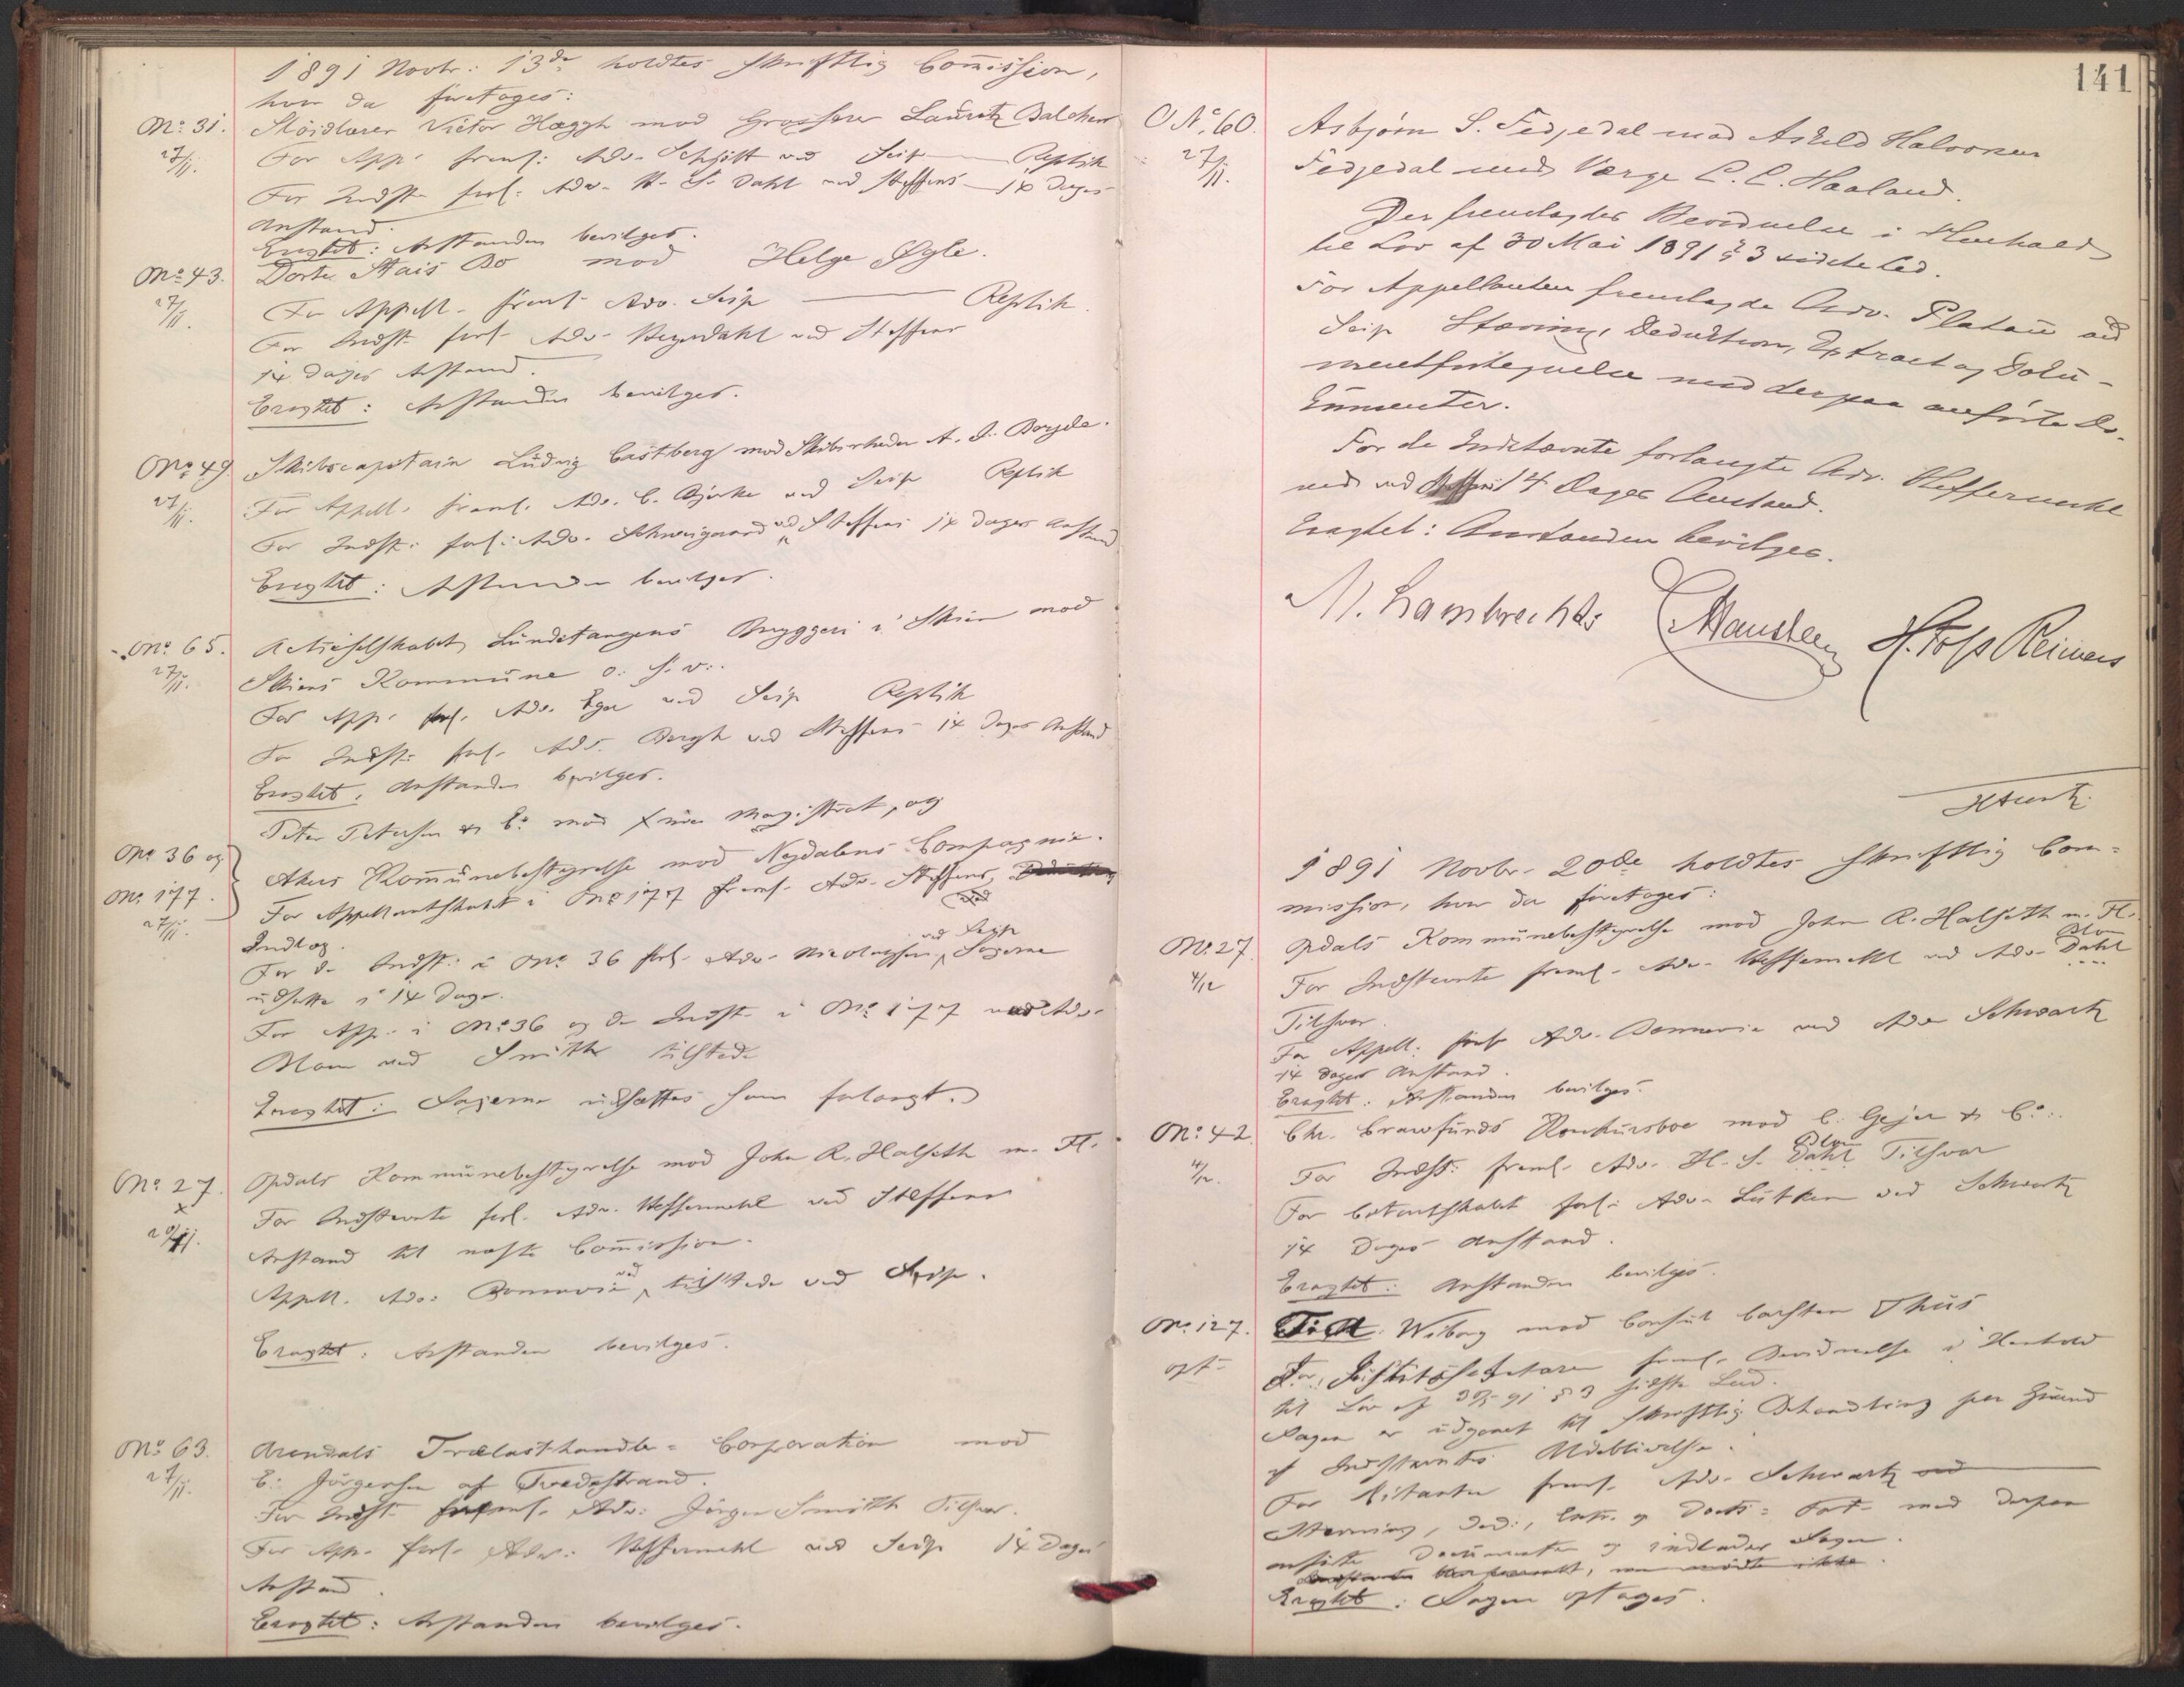 1891 Novbr: 13de holdtes skriftlig Commission,
hvor da foretoges:
No: 31. Sløidlærer Victor Hæggh mod Grosserer Lauritz Balchen
27/11. For App. freml: Adv. Schjött ved Seip — Replik
For Indst. forl: Adv. H. S. Dahl ved Steffens — 14 Dages
Anstand.
Eragtet: Anstanden bevilges.
No: 43. Dorte Stais Bo mod Helge Øgle.
27/11. For Appell. freml. Adv. Seip — Replik.
For Indst. forl. Adv. Heyerdahl ved Steffens
14 dages Anstand.
Eragtet: Anstanden bevilges.
No: 49. Skibscapitain Ludvig Castberg mod Skibsrheder A. I. Boyde.
27/11. For Appell. freml. Adv. C. Bjerke ved Seip Replik
For Indst: forl: Adv. Schweigaard ved Steffens 14 dages Anstand
Eragtet: Anstanden bevilges.
No: 65. Actieselskabet Lundetangens Bryggeri i Skien mod
27/11. Skiens Kommune o. s. v.
For App. freml. Adv. Eger ved Seip Replik
For Indst: forl. Adv. Bergh ved Steffens 14 Dages Anstand
Eragtet: Anstanden bevilges.
Peter Petersen & Co mod Magistrat, og
No: 36 og Akers Kommunebestyrelse mod Nydalens Compagnie.
No: 177. For Appellantskabet i No 177 freml. Adv. Steffens,
27/11. Indlæg. ved Seip
For de Indst: i No 36 forl. Adv. Nicolaysen, Sagerne
udsatte i 14 Dage.
For App. i No: 36 og de Indst. i No: 177 Adv.
Blom ved Smith tilstede
Eragtet: Sagerne udsættes som forlangt.
No: 27. Opdals Kommunebestyrelse mod John R. Halseth m. Fl.
20/11. For Indstevnte forl. Adv. Steffermehl ved Steffens
Anstand til næste Commission.
Appell. Adv: Bonnevie tilstede ved Seip.
Eragtet: Anstanden bevilges.
No: 63. Arendals Trælasthandler-Corporation mod
27/11. E. Jørgensen af Tvedestrand.
For Indst. freml. Adv: Jørgen Smith Tilsvar.
For App. forl. Adv: Steffermehl ved Seip 14 Dages
Anstand.
Eragtet: Anstanden bevilges.
141
No: 60. Asbjørn S. Fedjedal mod Askild Halvorsen
27/11. Fedjedal med Værge L. L. Haaland.
Der fremlagdes Bevidnelse i Henhold
til Lov af 30 Mai 1891 § 3 sidste Led.
For Appellanten fremlagde Adv. Platou ved
Seip Stævning, Deduktion, Extract og Doku-
mentfortegnelse med derpaa anførte Do-
kumenter.
For de Indstævnte forlangte Adv. Steffermehl
ved 14 Dages Anstand.
Eragtet: Anstanden bevilges.
M. Lambrechts Mansteen H. Foss Reimers
1891 Novbr. 20de holdtes skriftlig Com-
mission, hvor da foretoges:
No. 27 Opdals Kommunebestyrelse mod John R. Halseth m. Fl.
4/12 For Indstevnte freml. Adv. Steffermehl ved Adv. Dahl
Tilsvar.
For Appell. forl. Adv. Bonnevie ved Adv. Schwartz
14 Dages Anstand.
Eragtet: Anstanden bevilges.
No: 42. Chr. Crawfurds Konkursboe mod C. Gejer & Co.
4/12. For Indst: freml. Adv. H. S. Dahl Tilsvar
For Citantskabet forl: Adv. Lütken ved Schwartz
14 Dages Anstand.
Eragtet: Anstanden bevilges.
No: 127. Wiborg mod Consul Carsten Thiis
opt. Justitssekretæren freml. Bevidnelse i Henhold
til Lov af 30/5 91 § 3 sidste Led.
Sagen er udgaaet til skriftlig Behandling paa Grund
af Indstevntes Udeblivelse.
For Citanten freml. Adv. Schwartz
Stevning, Ded:, Extr. og Doct: Fort. med derpaa
anførte Documenter og indlader Sagen.
Eragtet: Sagen optages.